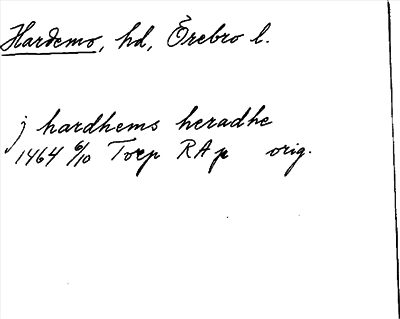 Hardemo, hd, Örebro l.
j hardhems heradhe
1464 6/10 Torp RA p orig.